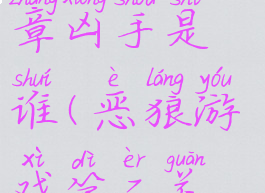 zhāng xiōng shǒu shì
章凶手是
shuí è láng yóu
谁(恶狼游
xì dì èr guān
戏第二关